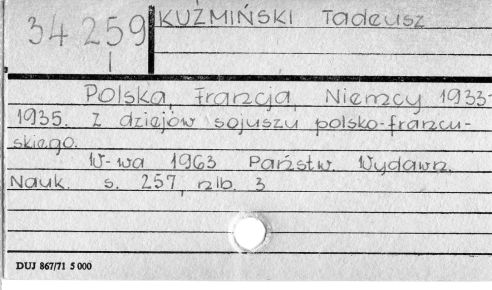 34 259
I
KUŹMIŃSKI Tadeusz
Polska, Francja, Niemcy 1933-
1935. Z dziejów sojuszu polsko-francu-
skiego.
W-wa 1963 Państw. Wydawn.
Nauk. s. 257, nlb. 3
DUJ 867/71 5 000